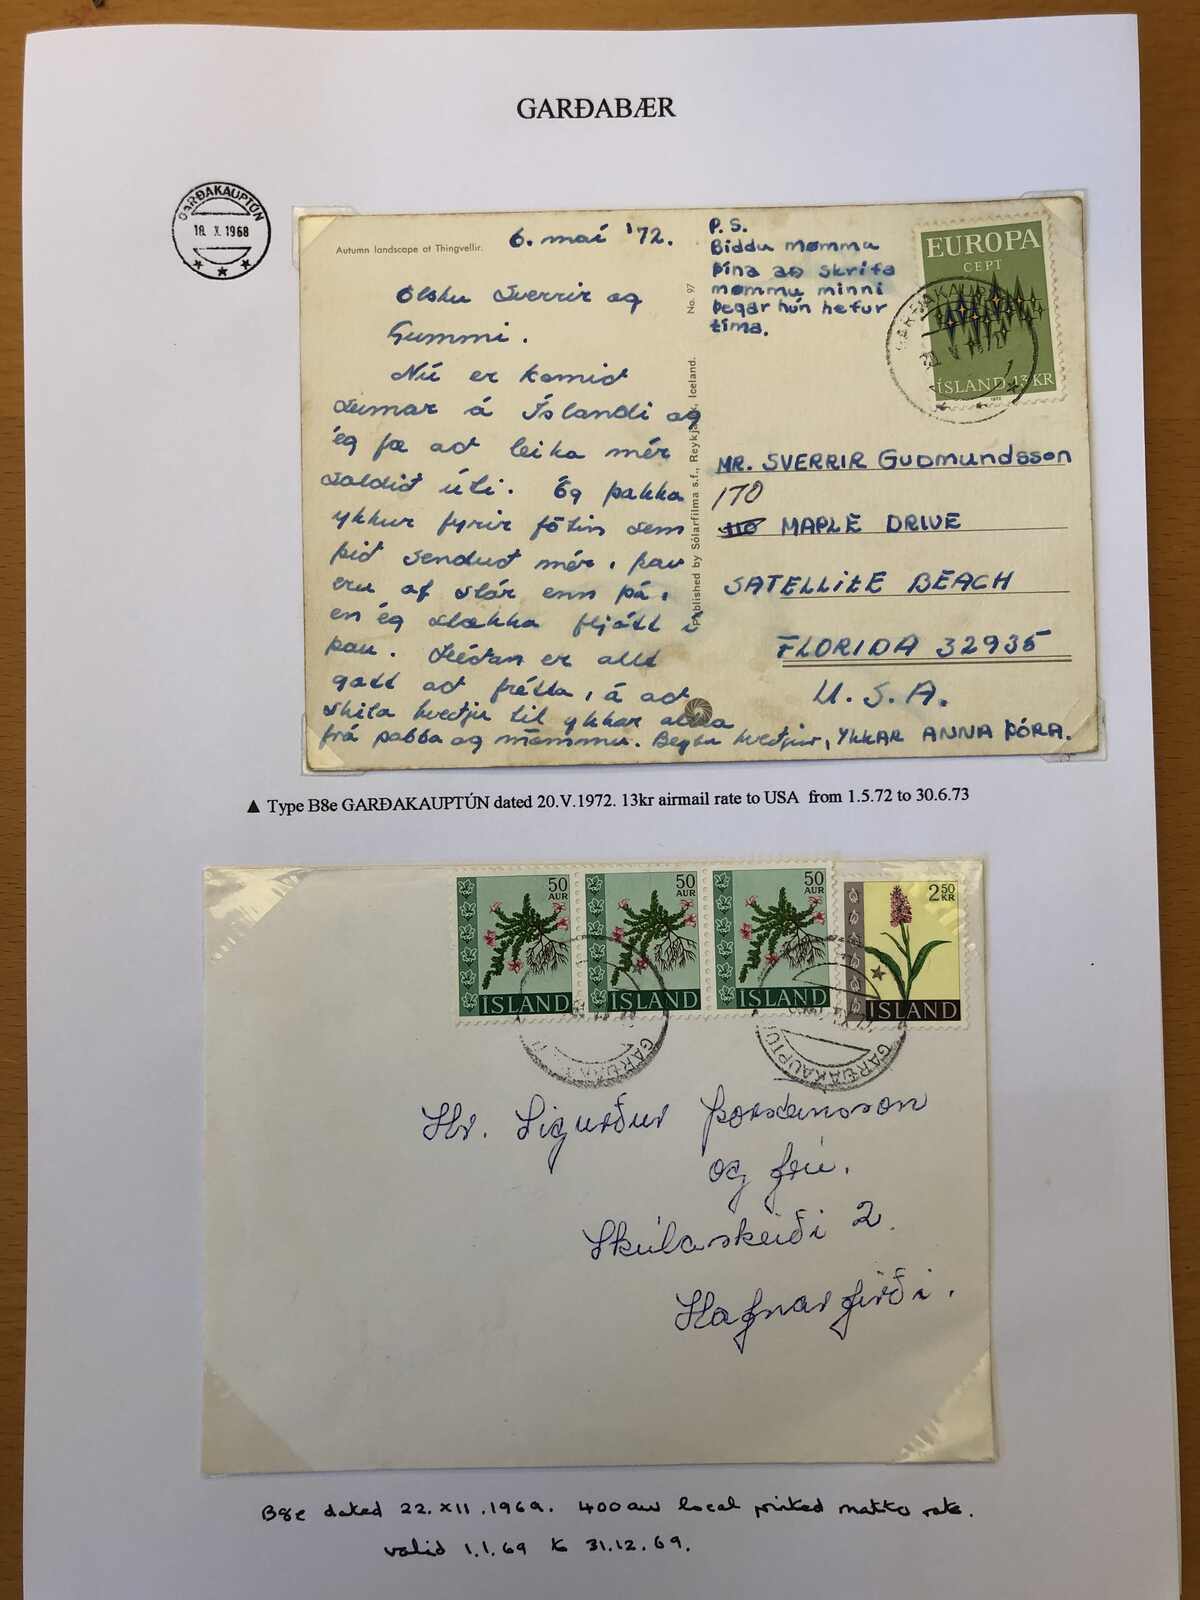 GARÐABÆR
GARÐAKAUPTÚN
18. X. 1968
Autumn landscape at Thingvellir.
6. maí '72.
Elsku Sverrir og
Gummi.
Nú er komið
sumar á Íslandi og
ég fæ að leika mér
soldið úti. Ég þakka
ykkur fyrir fötin sem
þið senduð mér, þau
eru of stór enn þá,
en ég stækka fljótt í
þau. Héðan er allt
gott að frétta, á að
skila kveðju til ykkar allra
frá pabba og mömmu. Beztu kveðjur, YKKAR ANNA ÞÓRA.
P.S.
Biddu mömmu
þína að skrifa
mömmu minni
þegar hún hefur
tíma.
No. 97
Published by Sólarfilma s.f., Reykjavík, Iceland.
EUROPA
CEPT
ÍSLAND 13 KR
1972
GARÐAKAUPTÚN
MR. SVERRIR GUÐMUNDSSON
170
110 MAPLE DRIVE
SATELLITE BEACH
FLORIDA 32935
U.S.A.
▲ Type B8e GARÐAKAUPTÚN dated 20.V.1972. 13kr airmail rate to USA from 1.5.72 to 30.6.73
50 AUR
ÍSLAND
50 AUR
ÍSLAND
50 AUR
ÍSLAND
2 50 KR
ÍSLAND
GARÐAKAUPTÚN
Hr. Sigurður Þorsteinsson
og frú.
Skúlaskeiði 2.
Hafnarfirði.
B8e dated 22.XII.1969. 400aur local printed matter rate.
valid 1.1.69 to 31.12.69.